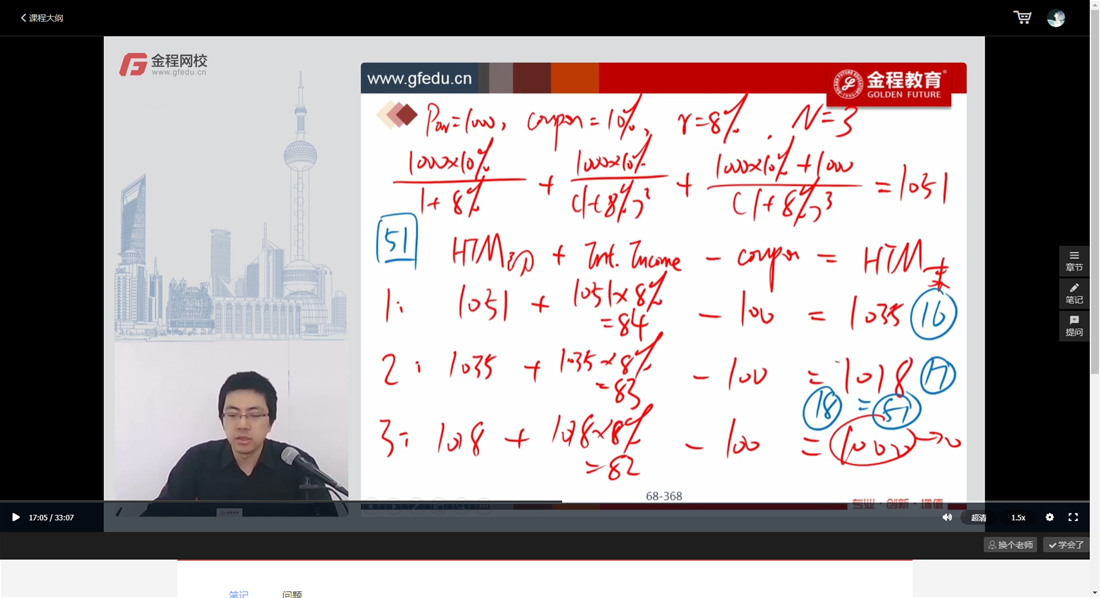 课程大纲
金程网校
www.gfedu.cn
www.gfedu.cn
金程教育
GOLDEN FUTURE
Par=1000, coupon=10%, r=8%. N=3
1000×10% / 1+8% + 1000×10% / (1+8%)² + 1000×10%+1000 / (1+8%)³ = 1051
51
HTM初 + Int. Income - coupon = HTM末
1: 1051 + 1051×8% =84 - 100 = 1035 16
2: 1035 + 1035×8% =83 - 100 = 1018 17
18 = 51
3: 1018 + 1018×8% =82 - 100 = 1000 → 0
章节
笔记
提问
68-368
专业·创新·增值
17:05 / 33:07
超清
1.5x
换个老师
学会了
笔记
问题